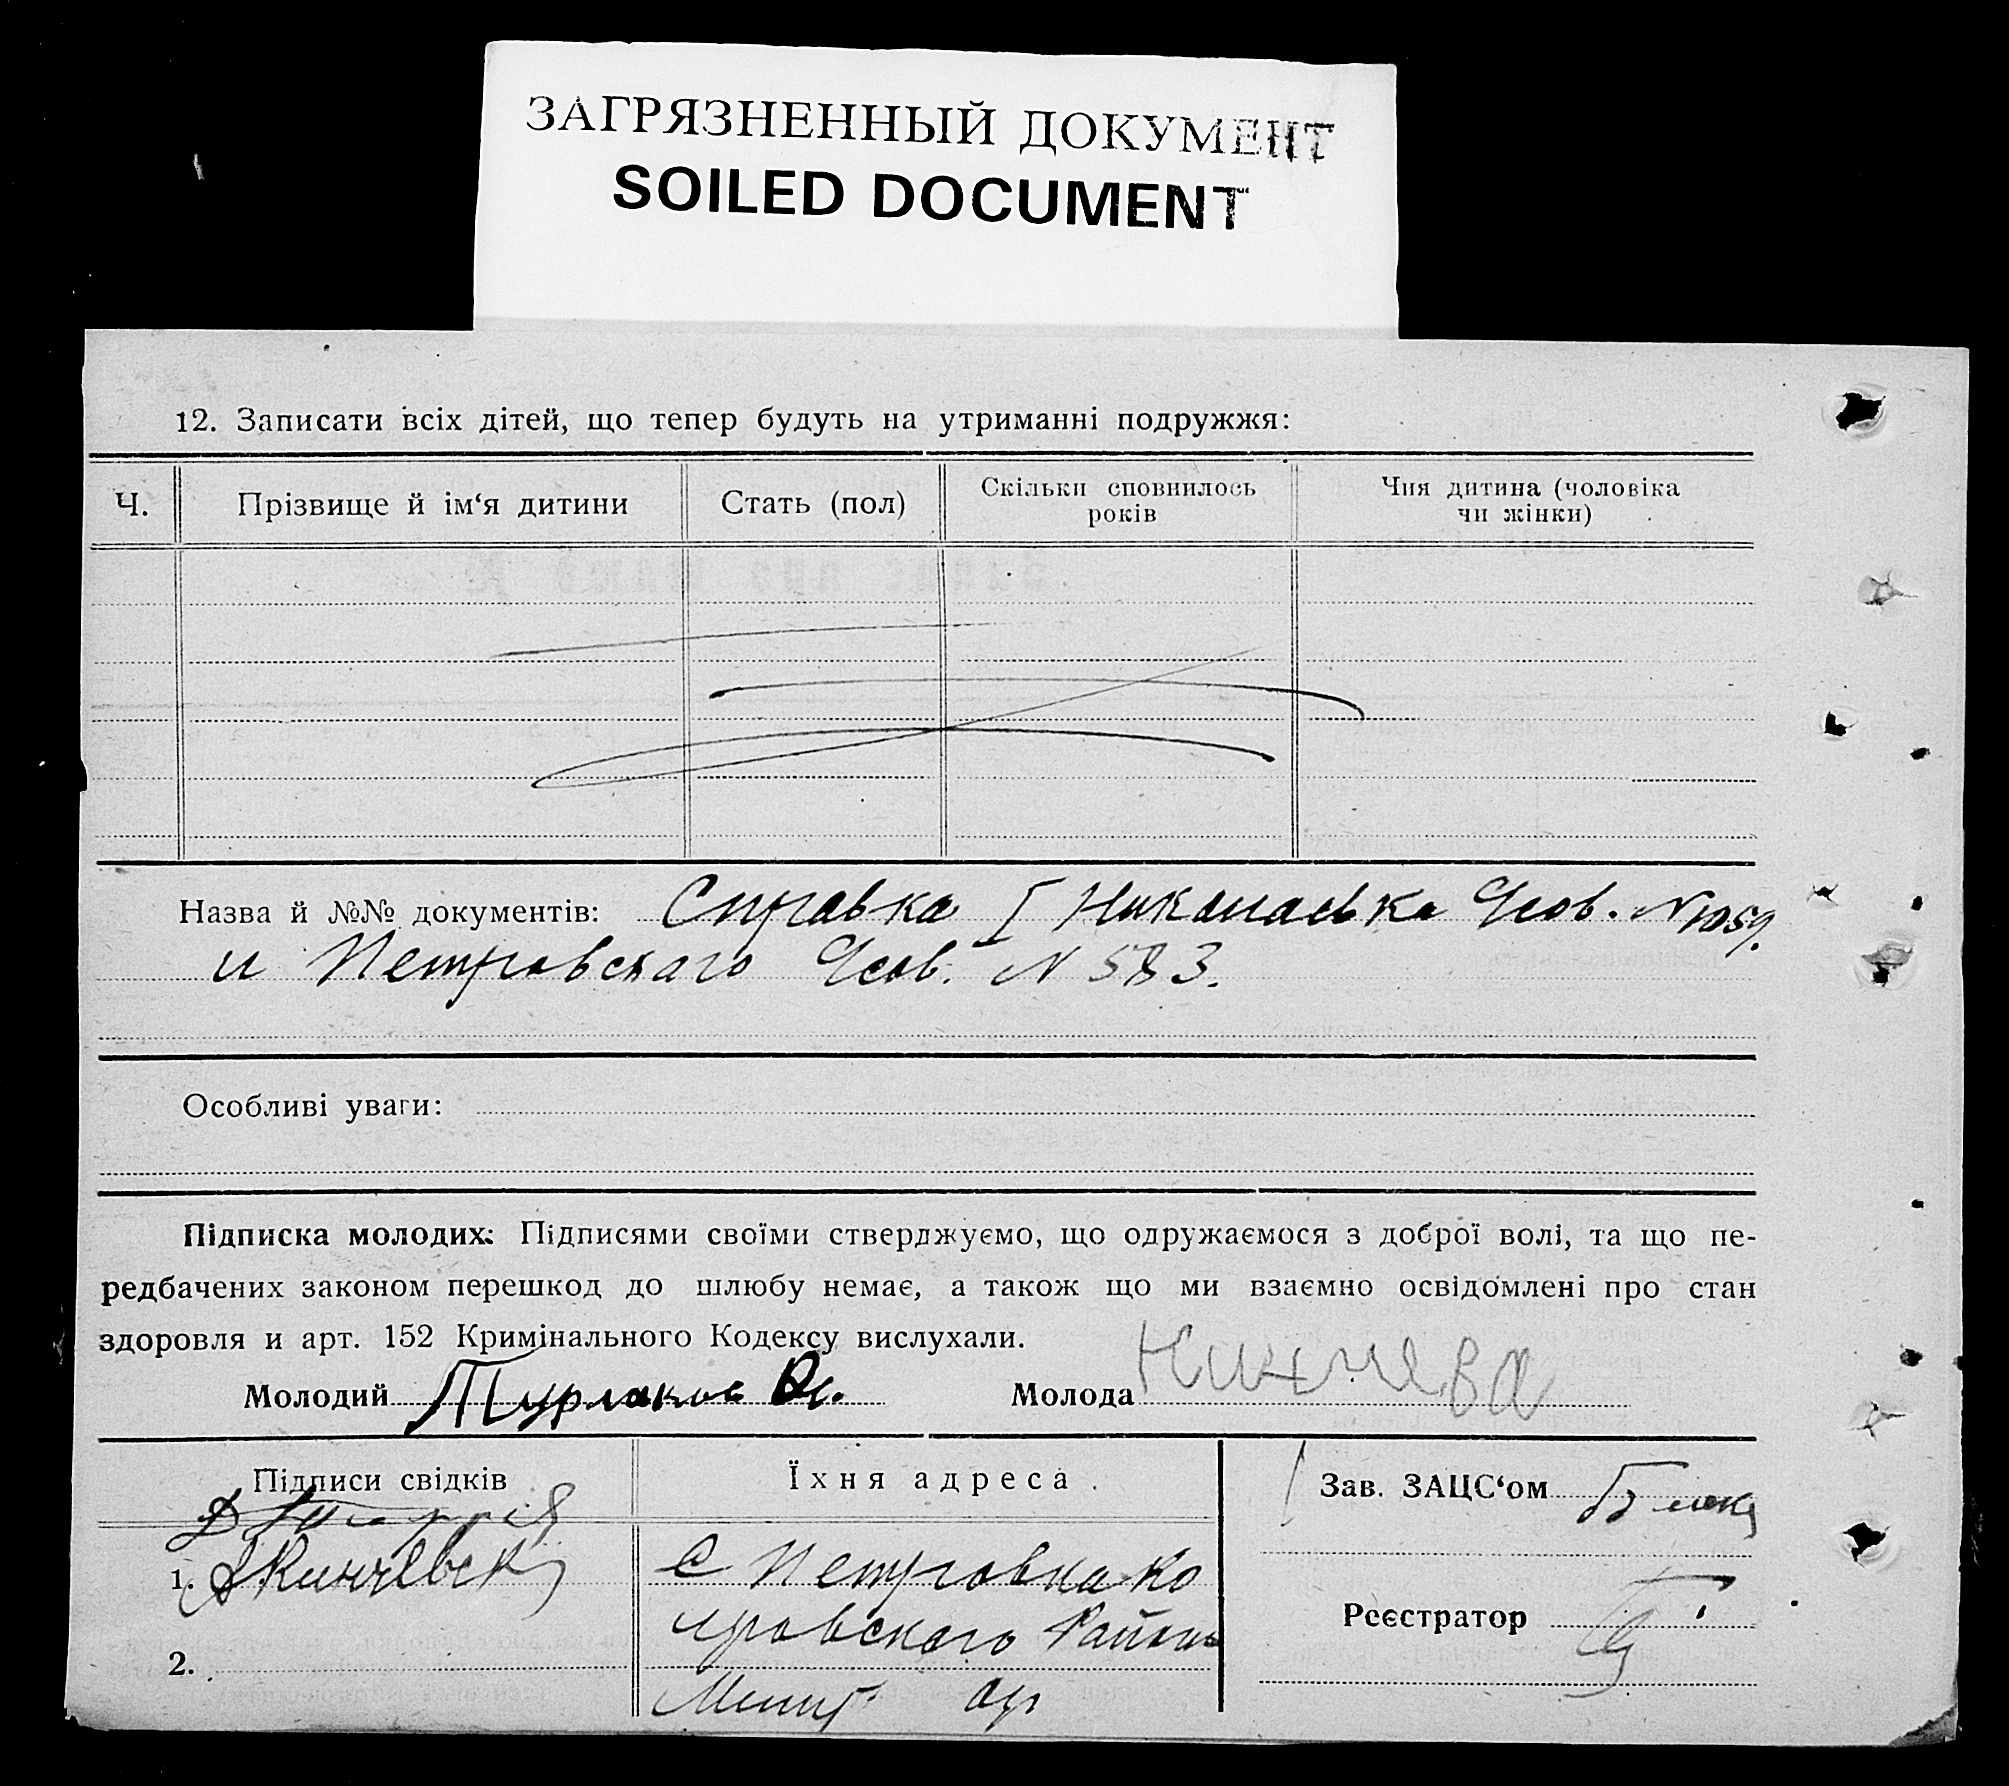 ЗАГРЯЗНЕННЫЙ ДОКУМЕНТ
SOILED DOCUMENT
12. Записати всіх дітей, що тепер будуть на утриманні подружжя:
Ч. Прізвище й ім‘я дитини Стать (пол) Скільки сповнилось років Чия дитина (чоловіка чи жінки)
Назва й №№ документів: Справка I Чсов. N 1059.
и Петровскаго Чсов. N 583.
Особливі уваги:
Підписка молодих: Підписями своїми стверджуємо, що одружаємося з доброї волі, та що пе-
редбачених законом перешкод до шлюбу немає, а також що ми взаємно освідомлені про стан
здоровля и арт. 152 Кримінального Кодексу вислухали.
Молодий Молода
Підписи свідків Їхня адреса Зав. ЗАЦС‘ом
1. С Петровка
Реєстратор
2.